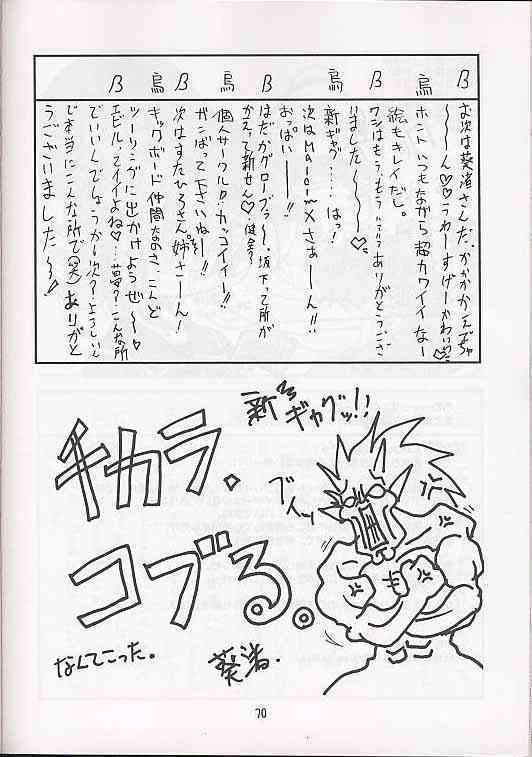 β お次は葵渚さんだ、かかかかんどちゃ
〜〜ん♡♡うわーすげーかわいっ♡
烏 ホントいつもながら超カワイイなー
絵もキレイだし。
β ワシはもうもう ありがとうござ
いました〜〜♡
烏 新ギャグ……はっ！
次はMalcomXさぁ〜ん!!
おっぱいー!!
β はだかグローブぅ〜、坂下って所が
かえって新せん♡健全？
烏 個人サークルロ・カッコイイー!!
ガンばって下さいねー!!
β 次はすたひろさん姉さーん！
烏 キックボード仲間なのさ、こんど
ツーリングに出かけようぜ〜〜
β エビル・マイイよね♡…夢？こんな所
でいいんでしょうか次？よろしいん
じ本当にこんな所で(笑)ありがと
うございました〜！
新ギャグッ!!
チカラ。
コブる。
ブイッ
なんてこった。
葵渚.
70